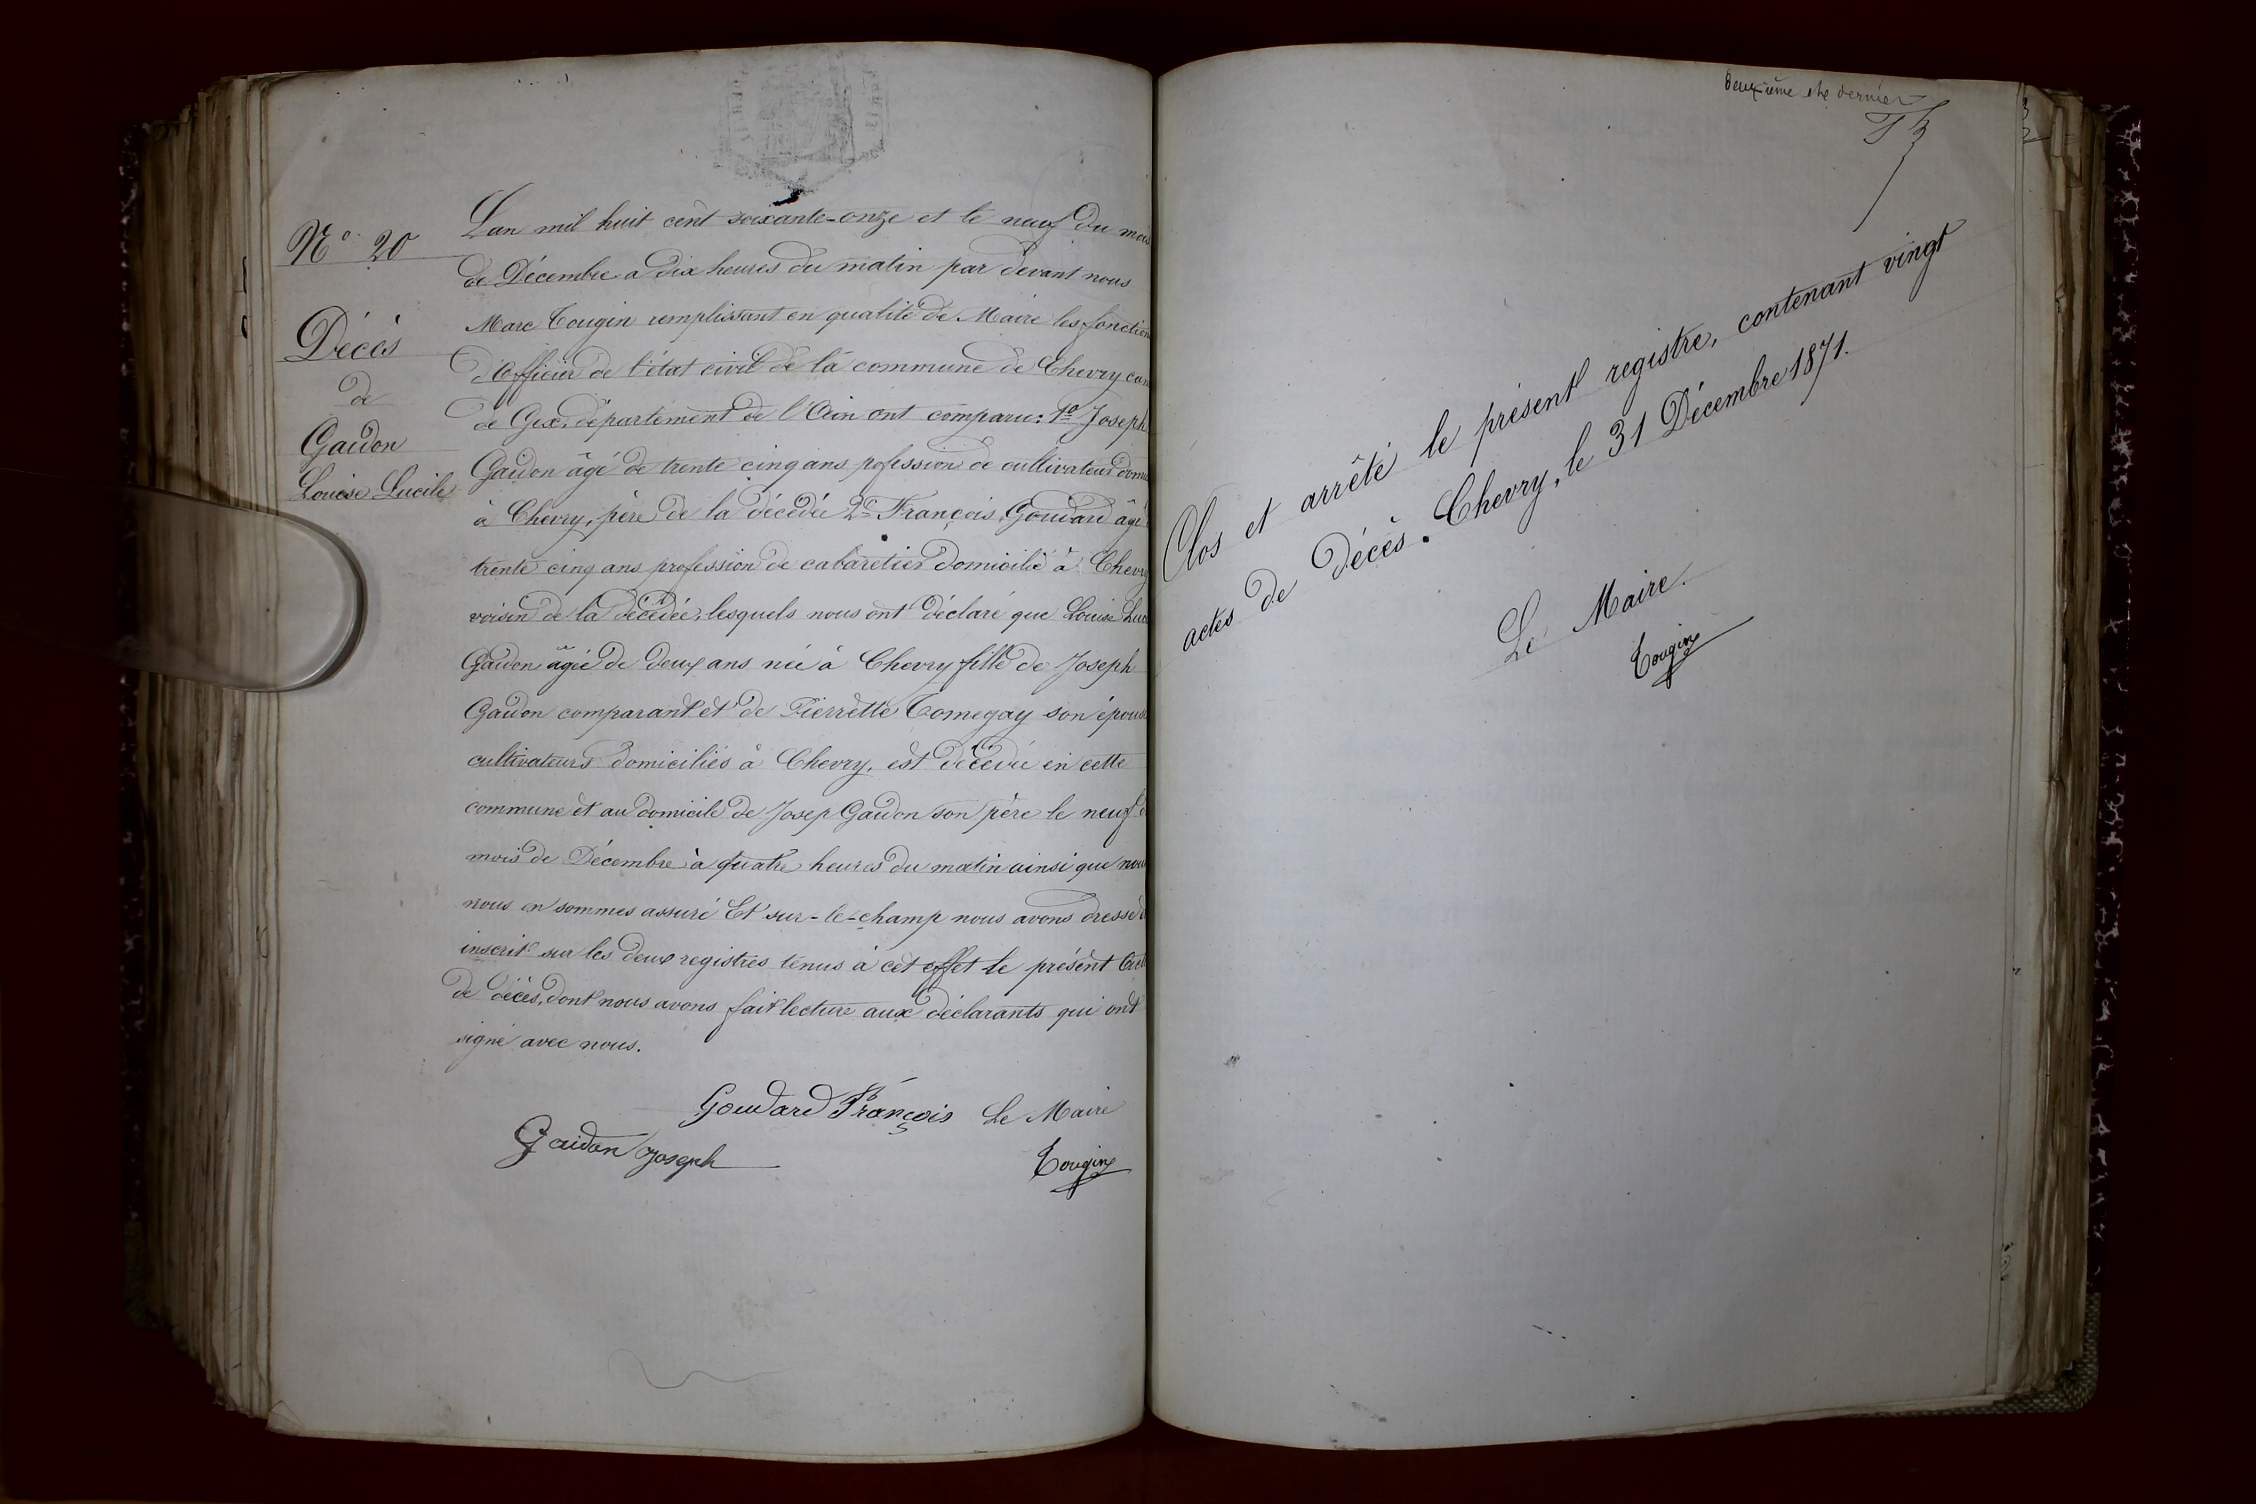 N° 20
Décès
de
Gaidon
Louise Lucile
L'an mil huit cent soixante-onze et le neuf du mois
de Décembre à dix heures du matin par devant nous
Marc Tougin remplissant en qualité de Maire les fonction
d'officier de l'état civil de la commune de Chevry can
de Gex, département de l'Ain ont comparu: 1° Joseph
Gaidon âgé de trente cinq ans pofession de cultivateur domi
à Chevry, père de la décédée 2° François Goudard âgé
trente cinq ans profession de cabaretier domicilié à Chevry
voisin de la décédée, lesquels nous ont déclaré que Louise Luc
Gaidon âgée de deux ans née à Chevry fille de Joseph
Gaidon comparant et de Pierrette Tomegay son épouse
cultivateurs domiciliés à Chevry, est décédée en cette
commune et au domicile de Josep Gaidon son père le neuf d
mois de Décembre à quatre heures du matin ainsi que nous
nous en sommes assuré Et sur-le-champ nous avons dressé
inscrit sur les deux registres tenus à cet effet le présent Acte
de décès, dont nous avons fait lecture aux déclarants qui ont
signé avec nous.
Goudard François Le Maire
Gaidon Joseph Tougin
Deuxième et dernier
Clos et arrêté le présent registre, contenant vingt
actes de Décès. Chevry, le 31 Décembre 1871.
Le Maire.
Tougin